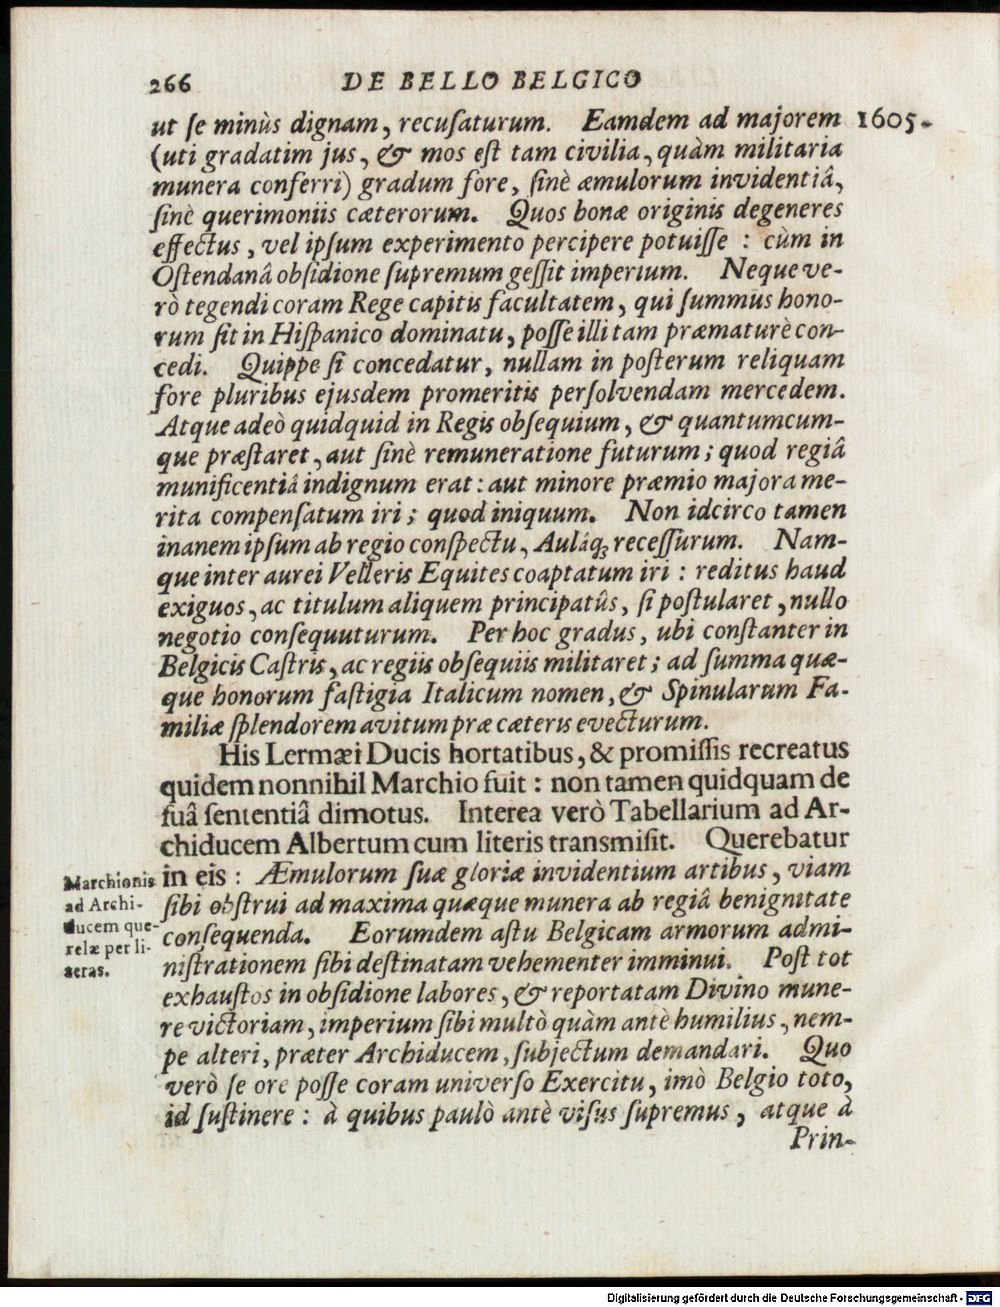 266 DE BELLO BELGICO
ut ſe minùs dignam, recuſaturum. Eamdem ad majorem 1605.
(uti gradatim jus, & mos eſt tam civilia, quàm militaria
munera conferri) gradum fore, ſinè æmulorum invidentiâ,
ſinè querimoniis cæterorum. Quos bonæ originis degeneres
effectus, vel ipſum experimento percipere potuiſſe : cùm in
Oſtendanâ obſidione ſupremum geſſit imperium. Neque ve-
rò tegendi coram Rege capitis facultatem, qui ſummus hono-
rum ſit in Hiſpanico dominatu, poſſe illi tam præmaturè con-
cedi. Quippe ſi concedatur, nullam in poſterum reliquam
fore pluribus ejusdem promeritis perſolvendam mercedem.
Atque adeò quidquid in Regis obſequium, & quantumcum-
que præſtaret, aut ſinè remuneratione futurum; quod regiâ
munificentiâ indignum erat : aut minore præmio majora me-
rita compenſatum iri; quod iniquum. Non idcirco tamen
inanem ipſum ab regio conſpectu, Aulâq; receſſurum. Nam-
que inter aurei Velleris Equites coaptatum iri : reditus haud
exiguos, ac titulum aliquem principatûs, ſi poſtularet, nullo
negotio conſequuturum. Per hoc gradus, ubi conſtanter in
Belgicis Caſtris, ac regiis obſequiis militaret; ad ſumma quæ-
que honorum faſtigia Italicum nomen, & Spinularum Fa-
miliæ ſplendorem avitum præ cæteris evecturum.
His Lermæi Ducis hortatibus, & promiſſis recreatus
quidem nonnihil Marchio fuit : non tamen quidquam de
ſuâ ſententiâ dimotus. Interea verò Tabellarium ad Ar-
chiducem Albertum cum literis transmiſit. Querebatur
in eis : Æmulorum ſuæ gloriæ invidentium artibus, viam
ſibi obſtrui ad maxima quæque munera ab regiâ benignitate
conſequenda. Eorumdem aſtu Belgicam armorum admi-
niſtrationem ſibi deſtinatam vehementer imminui. Poſt tot
exhauſtos in obſidione labores, & reportatam Divino mune-
re victoriam, imperium ſibi multò quàm antè humilius, nem-
pe alteri, præter Archiducem, ſubjectum demandari. Quo
verò ſe ore poſſe coram univerſo Exercitu, imò Belgio toto,
id ſuſtinere : à quibus paulò antè viſus ſupremus, atque à
Prin-
Marchionis
ad Archi-
ducem que-
relæ per li-
teras.
Digitalisierung gefördert durch die Deutsche Forschungsgemeinschaft - DFG